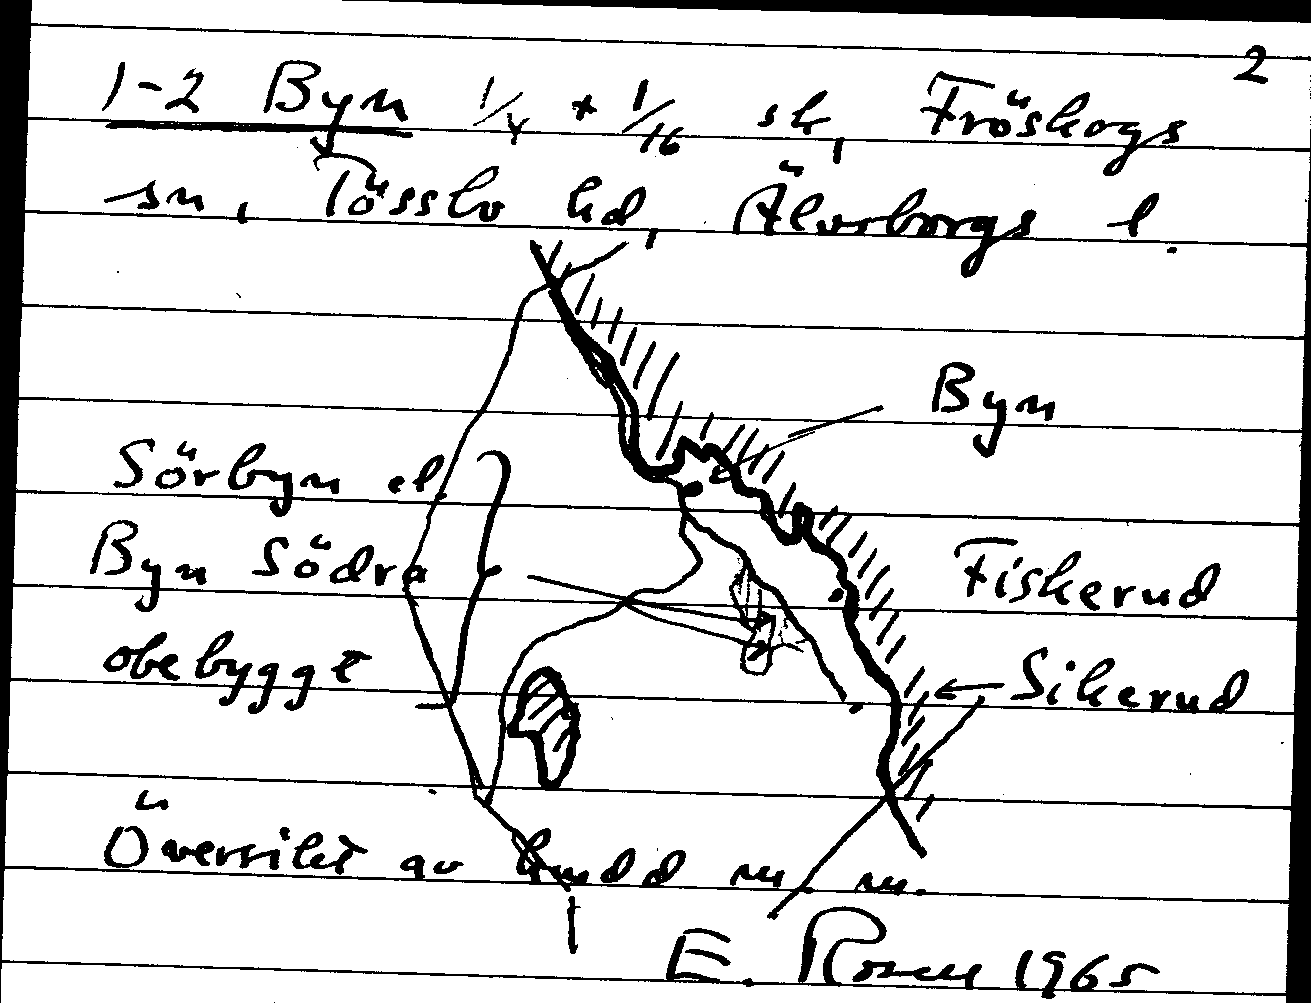 2
1-2 Byn 1/4 + 1/16 sk, Fröskogs
sn, Tösslv hd, Älvsborgs l.
Byn
Sörbyn el.
Byn Södra
obebyggt
Fiskerud
Sikerud
Översikt av m. m.
E. Rosen 1965